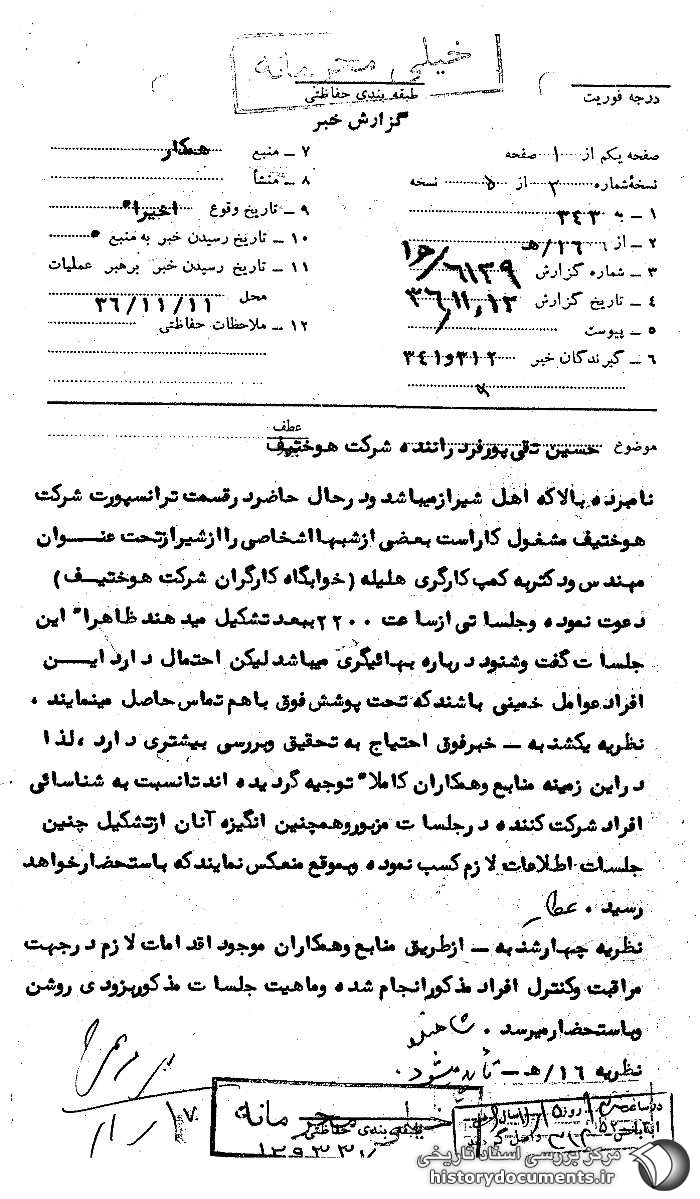 خیلی محرمانه
طبقه بندی حفاظتی
درجه فوریت
گزارش خبر
صفحه یکم از ۱ صفحه
نسخه شماره ۲ از ۵ نسخه
۱ ــ به ۳۴۳
۲ ــ از ۱۶/هـ
۳ ــ شماره گزارش ۶۱۳۹/۱۶هـ
۴ ــ تاریخ گزارش ۳۶،۱۱،۱۲
۵ ــ پیوست
۶ ــ گیرندگان خبر ۳۱۲و۳۴۱
۷ ــ منبع همکار
۸ ــ منشأ
۹ ــ تاریخ وقوع اخیرا"
۱۰ ــ تاریخ رسیدن خبر به منبع "
۱۱ ــ تاریخ رسیدن خبر برهبر عملیات
محل ۳۶/۱۱/۱۱
۱۲ ــ ملاحظات حفاظتی
موضوع حسین تقی پورفرد راننده شرکت هوختیف
عطف
نامبرده بالاکه اهل شیرازمیباشد ودرحال حاضردرقسمت ترانسپورت شرکت
هوختیف مشغول کاراست بعضی ازشبهااشخاصی راازشیرازتحت عنــوان
مهندس ودکتربه کمپ کارگری هلیله (خوابگاه کارگران شرکت هوختیـف)
دعوت نموده وجلساتی ازساعت ۲۲۰۰ ببعدتشکیل میدهندظاهرا" این
جلسات گفت وشنود درباره بهائیگری میباشدلیکن احتمال دارد ایــن
افرادعوامل خمینی باشندکه تحت پوشش فوق باهم تماس حاصل مینمایند .
نظریه یکشنبه ــ خبرفوق احتیاج به تحقیق وبررسی بیشتری دارد ،لذا
دراین زمینه منابع وهمکاران کاملا" توجیه گردیده اندتانسبت به شناسائی
افرادشرکت کننده درجلسات مزبوروهمچنین انگیزه آنان ازتشکیل چنین
جلسات اطلاعات لازم کسب نموده وبموقع منعکس نمایندکه باستحضارخواهد
رسید . عطار
نظریه چهارشنبه ــ ازطریق منابع وهمکاران موجود اقدامات لازم درجهت
مراقبت وکنترل افراد مذکورانجام شده وماهیت جلسات مذکوربزودی روشن
وباستحضارمیرسد .
نظریه ۱۶/هـ ــ تأیید میشود .
خیلی محرمانه
طبقه بندی حفاظتی
مرکز بررسی اسناد تاریخی
historydocuments.ir